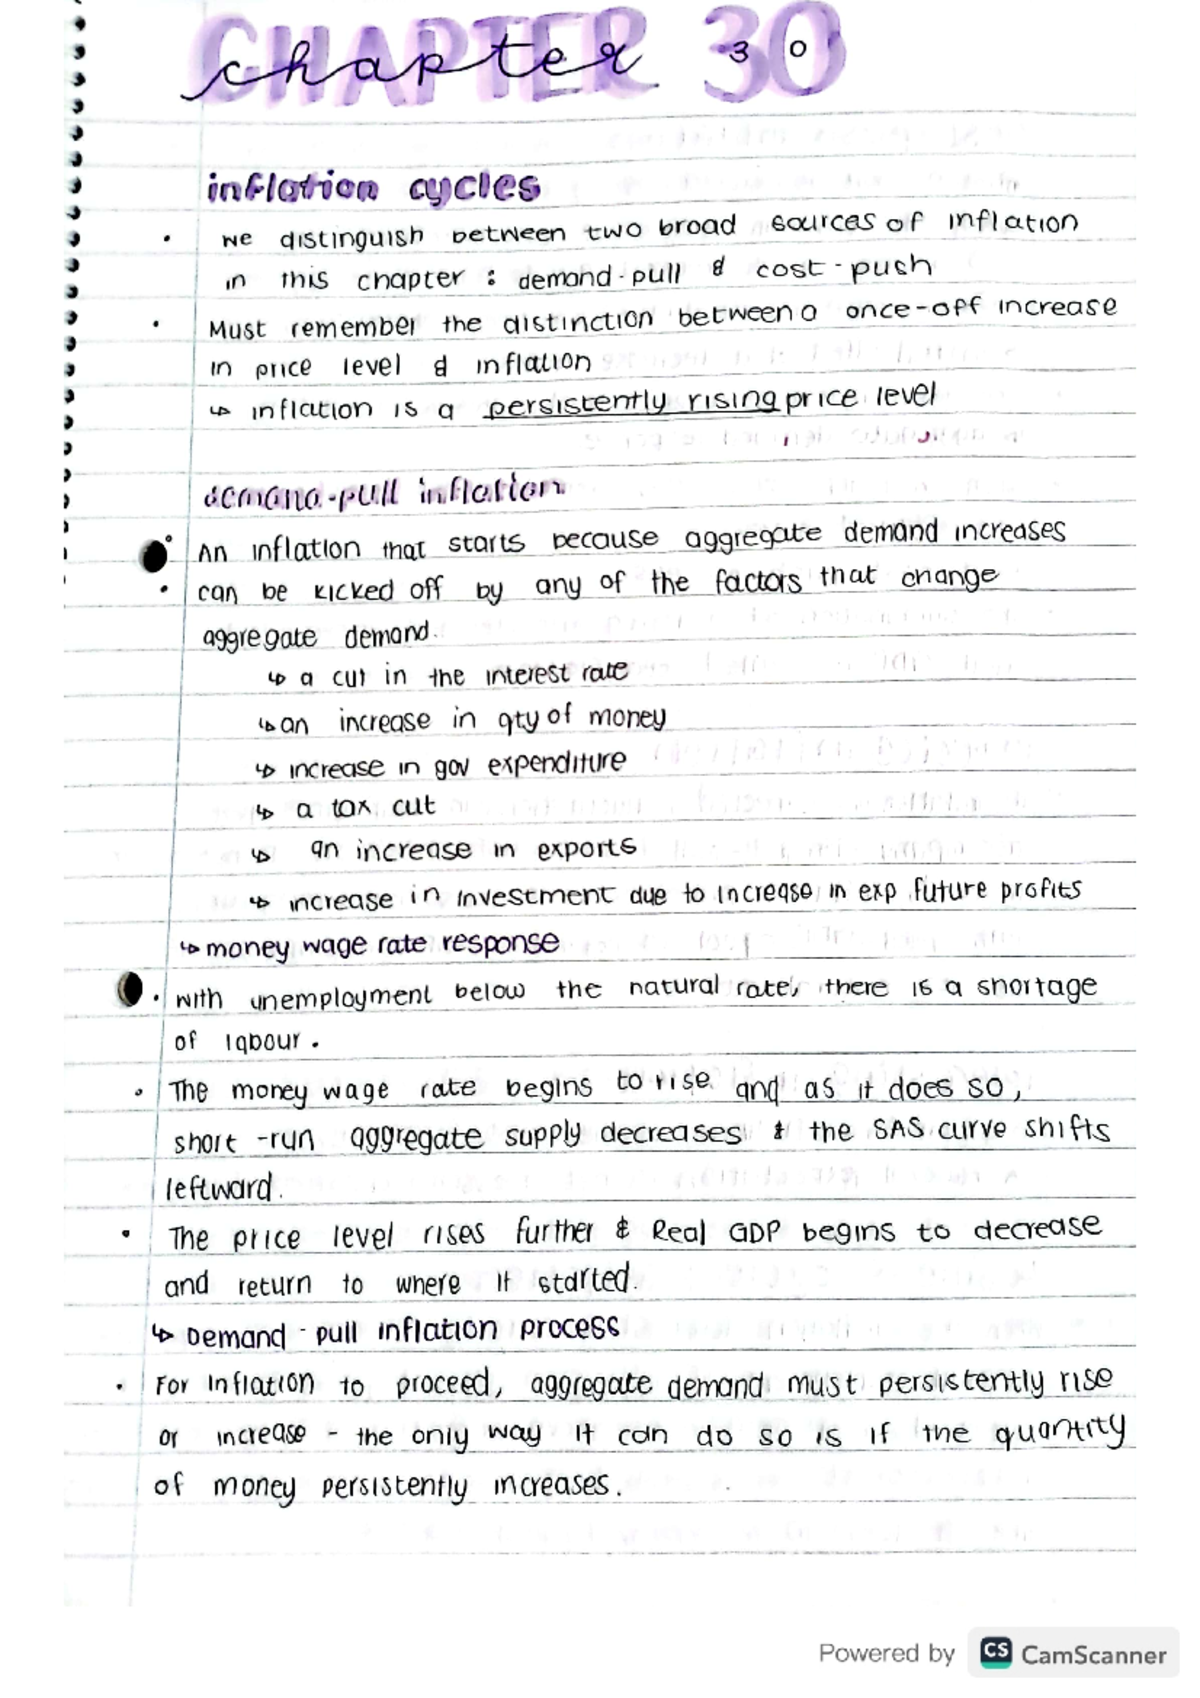 CHAPTER 30
chapter 30
inflation cycles
• we distinguish between two broad sources of inflation
in this chapter : demand-pull & cost-push
• Must remember the distinction between a once-off increase
in price level & inflation
↳ inflation is a persistently rising price level
demand-pull inflation
• An inflation that starts because aggregate demand increases
• can be kicked off by any of the factors that change
aggregate demand.
↳ a cut in the interest rate
↳ an increase in qty of money
↳ increase in gov expenditure
↳ a tax cut
↳ an increase in exports
↳ increase in investment due to increase in exp future profits
↳ money wage rate response
• with unemployment below the natural rate, there is a shortage
of labour.
• The money wage rate begins to rise and as it does so,
short-run aggregate supply decreases & the SAS curve shifts
leftward.
• The price level rises further & Real GDP begins to decrease
and return to where it started.
↳ Demand-pull inflation process
• For inflation to proceed, aggregate demand must persistently rise
or increase - the only way it can do so is if the quantity
of money persistently increases.
Powered by CS CamScanner